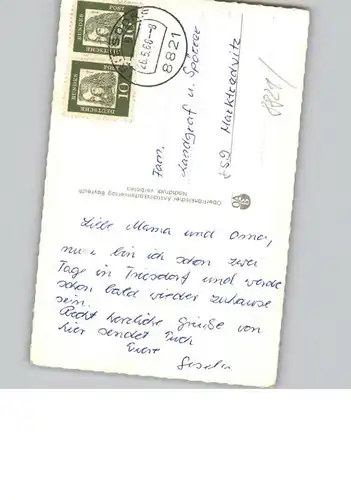 Liebe Mama und Oma,
nun bin ich schon zwei
Tage in Triesdorf und werde
schon bald wieder zuhause
sein.
Recht herzliche Grüße von
hier sendet Euch
Eure
Gisela
Fam.
Landgraf u. Spörrer
859 Marktredwitz
Oberfränkischer Ansichtskartenverlag Bayreuth
Nachdruck verboten
OAB
8821
26.5.66
DEUTSCHE
BUNDESPOST
10
DEUTSCHE
BUNDESPOST
10